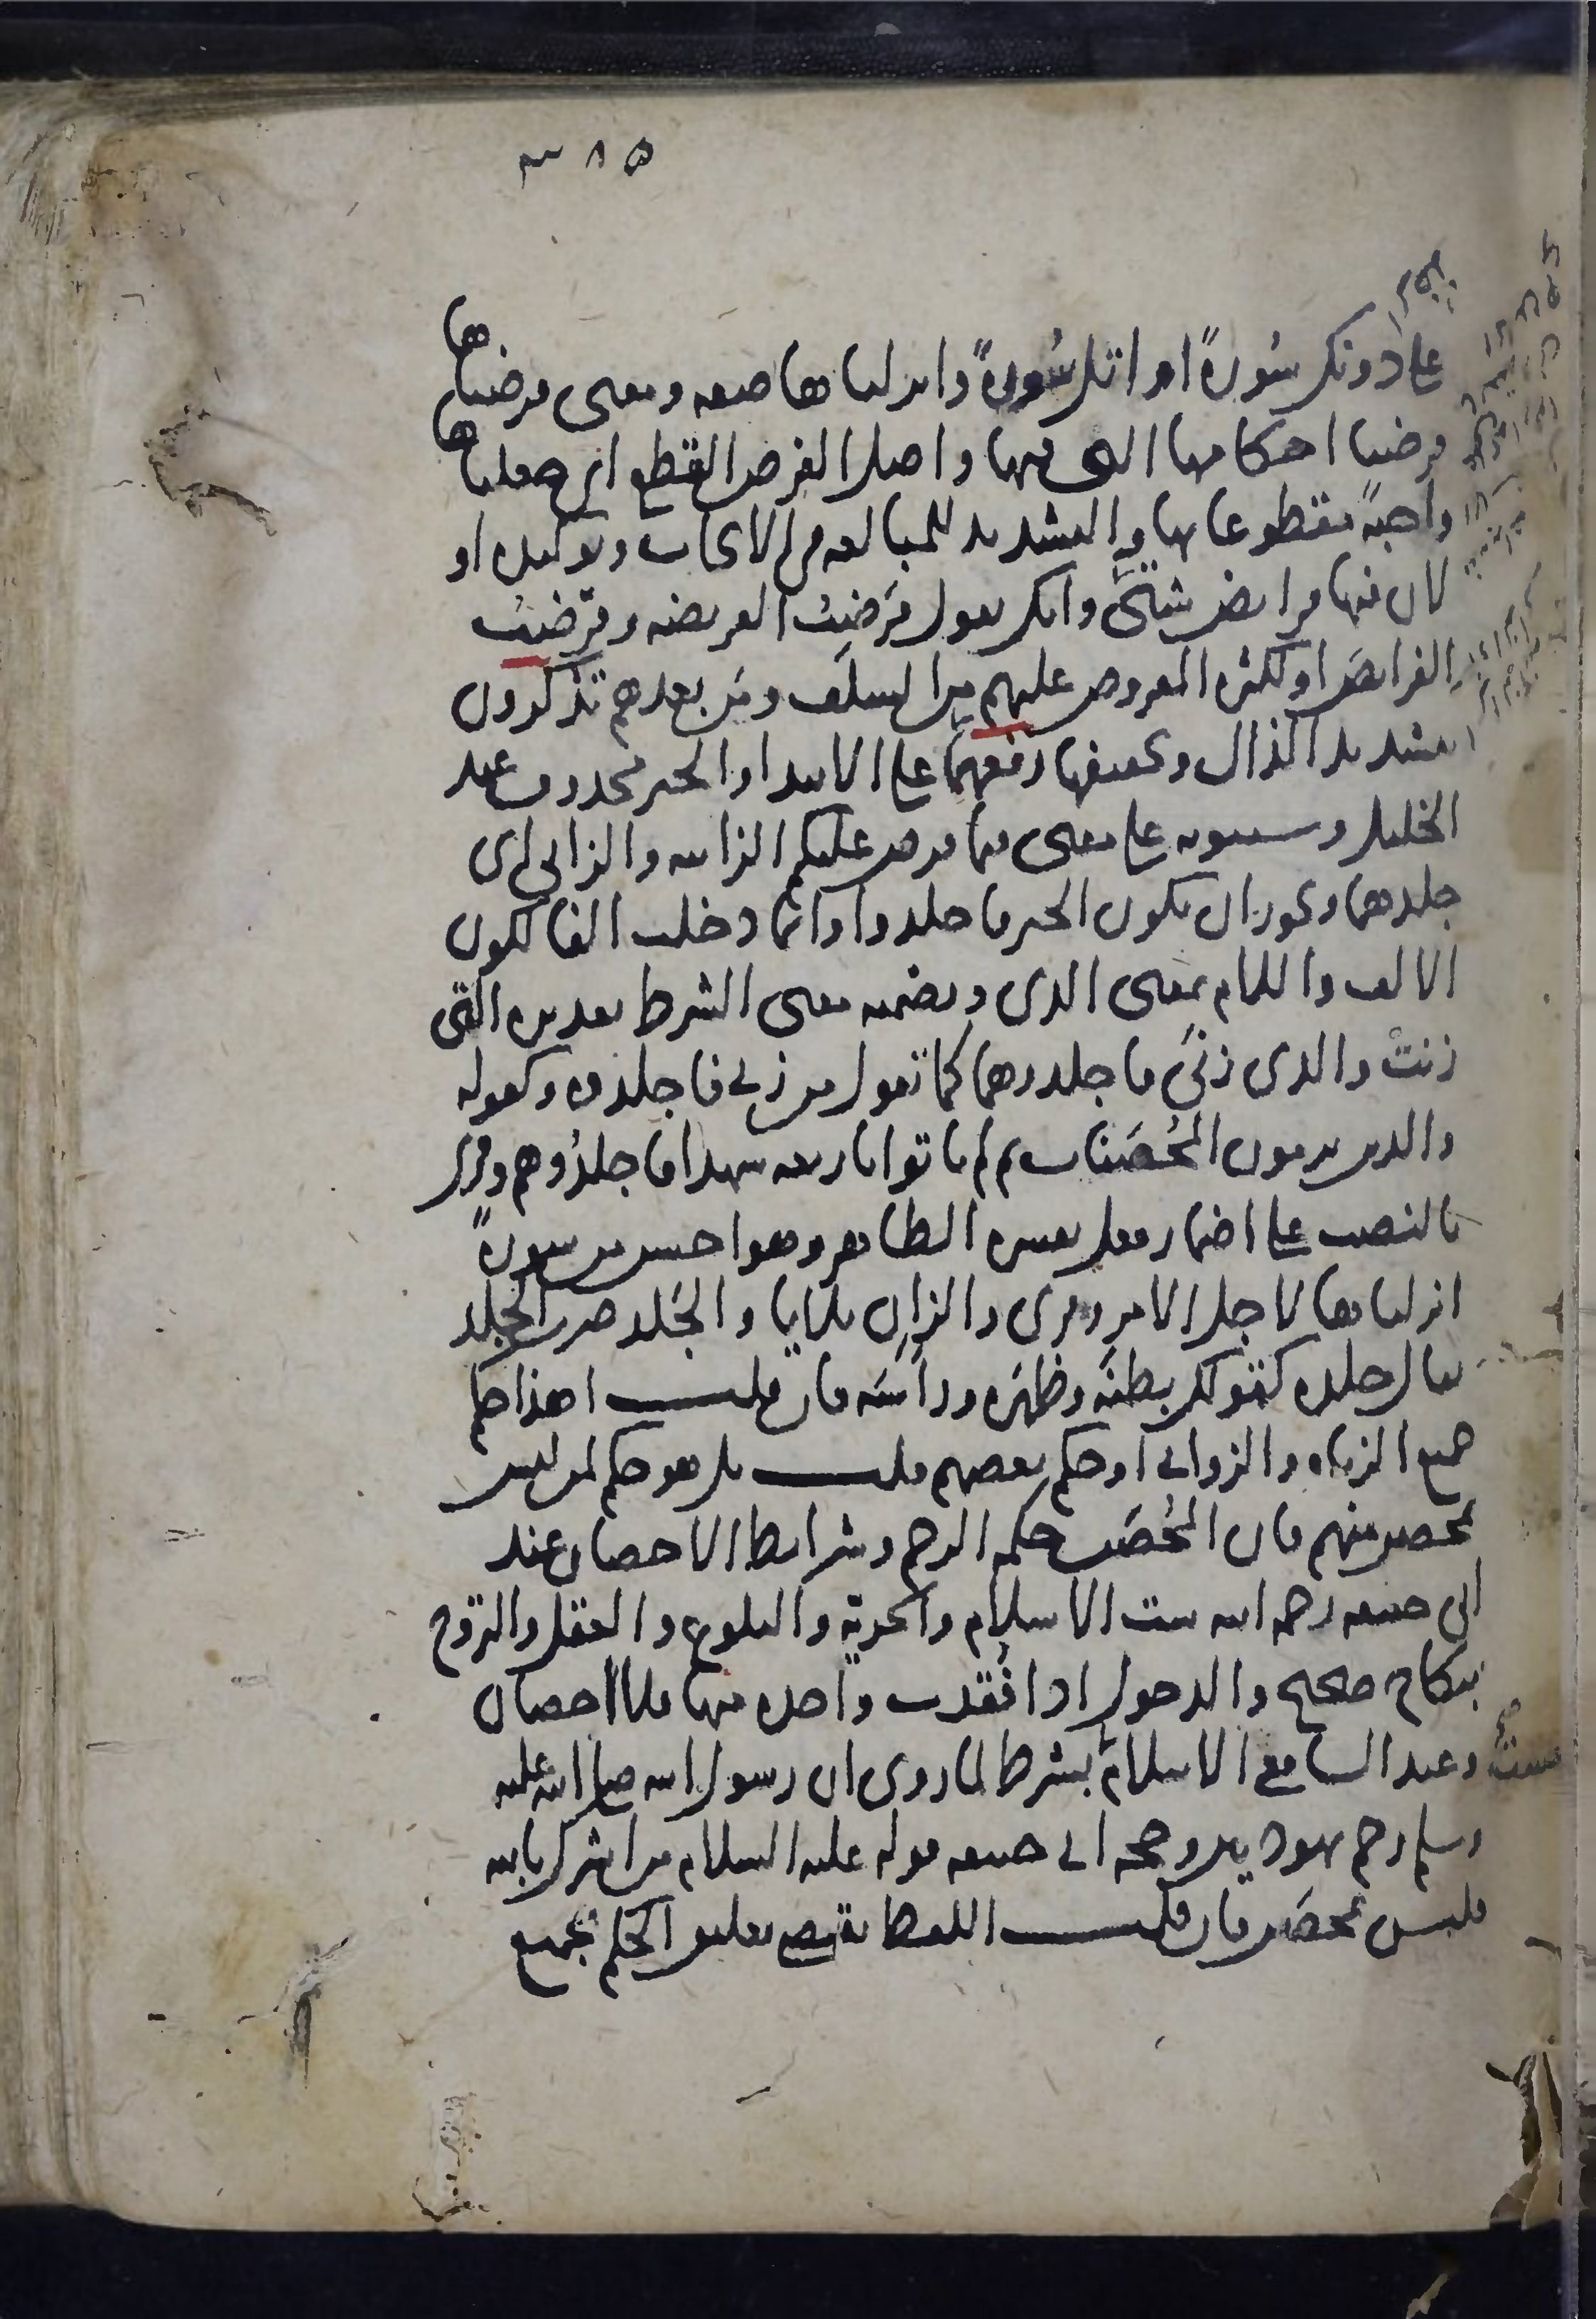 ٣٨٥
على دونك سُورةً او اتل سُورةً وانزلناها صفة ومعنى فرضناها
فرضنا احكامها التى فيها واصل الفرض القطع اى جعلناها
واجبةً مقطوعا بها والتشديد للمبالغة فى الايجاب وتوكيده او
لان فيها فرايض شتّىً وانك تقول فَرَضتُ الفريضة وفرّضتُ
الفرايضَ او لكثرة المفروض عليهم من السلَف ومَن بعدهم تذكرون
بتشديد الذال وتخفيفها رفعهما على الابتدا والخبر محذوف عند
الخليل وسيبويه على معنى فيما فرض عليكم الزانية والزانى اى
جلدهما ويجوز ان يكون الخبر فاجلدوا وانما دخلت الفا لكون
الالف واللام بمعنى الذى وتضمينه معنى الشرط تقديره التى
زنتْ والذى زنَى فاجلدوهما كما تقول من زنى فاجلدوه وكقوله
والذين يرمون المُحْصَنات ثم لم ياتوا باربعة شهدا فاجلدُوهم وقرى
بالنصب على اضمار فعل يفسره الظاهر وهو احسن من سورةً
انزلناها لاجل الامر وقرى والزانِ بلا يا والجَلد ضرب الجِلد
يقال جلده كقولك بطنَه وظهَره ورأسَه فان قلت اهذا حكم
جميع الزناه والزوانى او حكم بعضهم قلت بل هو حكم لمن ليس
بمحصن منهم فان المُحْصَن حكمه الرجم وشرايط الاحصان عند
ابى حنيفه رحمه الله ست الاسلام والحرية والبلوغ والعقل والتزوج
بنكاح صحيح والدخول اذا فُقدت واحده منها فلا احصان
وعند الشافعى الاسلام بشرط لما روى ان رسول الله صلى الله عليه
وسلم رجم يهوديين وحجة ابى حنيفه قوله عليه السلام من اشرك بالله
فليس بمحصَن فان قلت اللفظ يقتضى تعليق الحكم بجميع